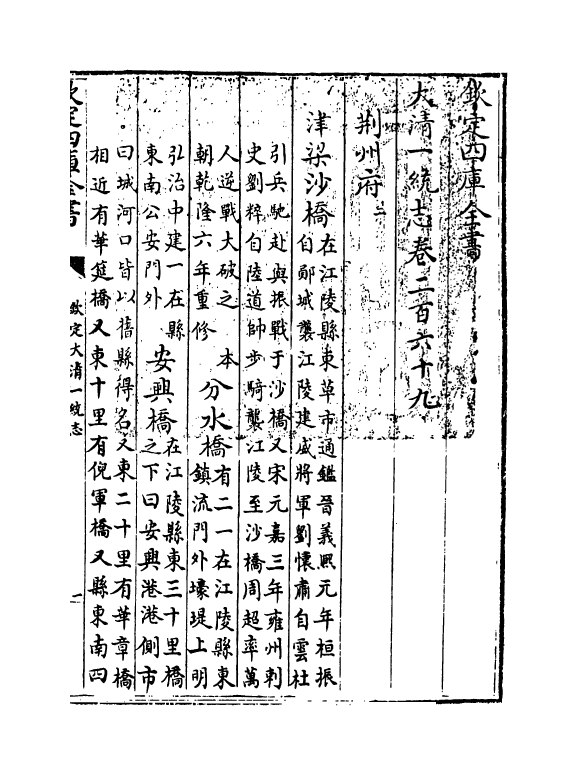 欽定四庫全書
大清一統志卷二百六十九
荆州府二
津梁沙橋在江陵縣東草市通鑑晉義熙元年桓振
自鄖城襲江陵建威將軍劉懷肅自雲杜
引兵馳赴與振戰于沙橋又宋元嘉三年雍州刺
史劉粹自陸道帥步騎襲江陵至沙橋周超率萬
人逆戰大破之本
朝乾隆六年重修分水橋有二一在江陵縣東
鎮流門外壕堤上明
弘治中建一在縣
東南公安門外安興橋在江陵縣東三十里橋
之下曰安興港港側市
曰城河口皆以舊縣得名又東二十里有華章橋
相近有華筵橋又東十里有倪軍橋又縣東南四
欽定四庫全書
欽定大清一統志
一